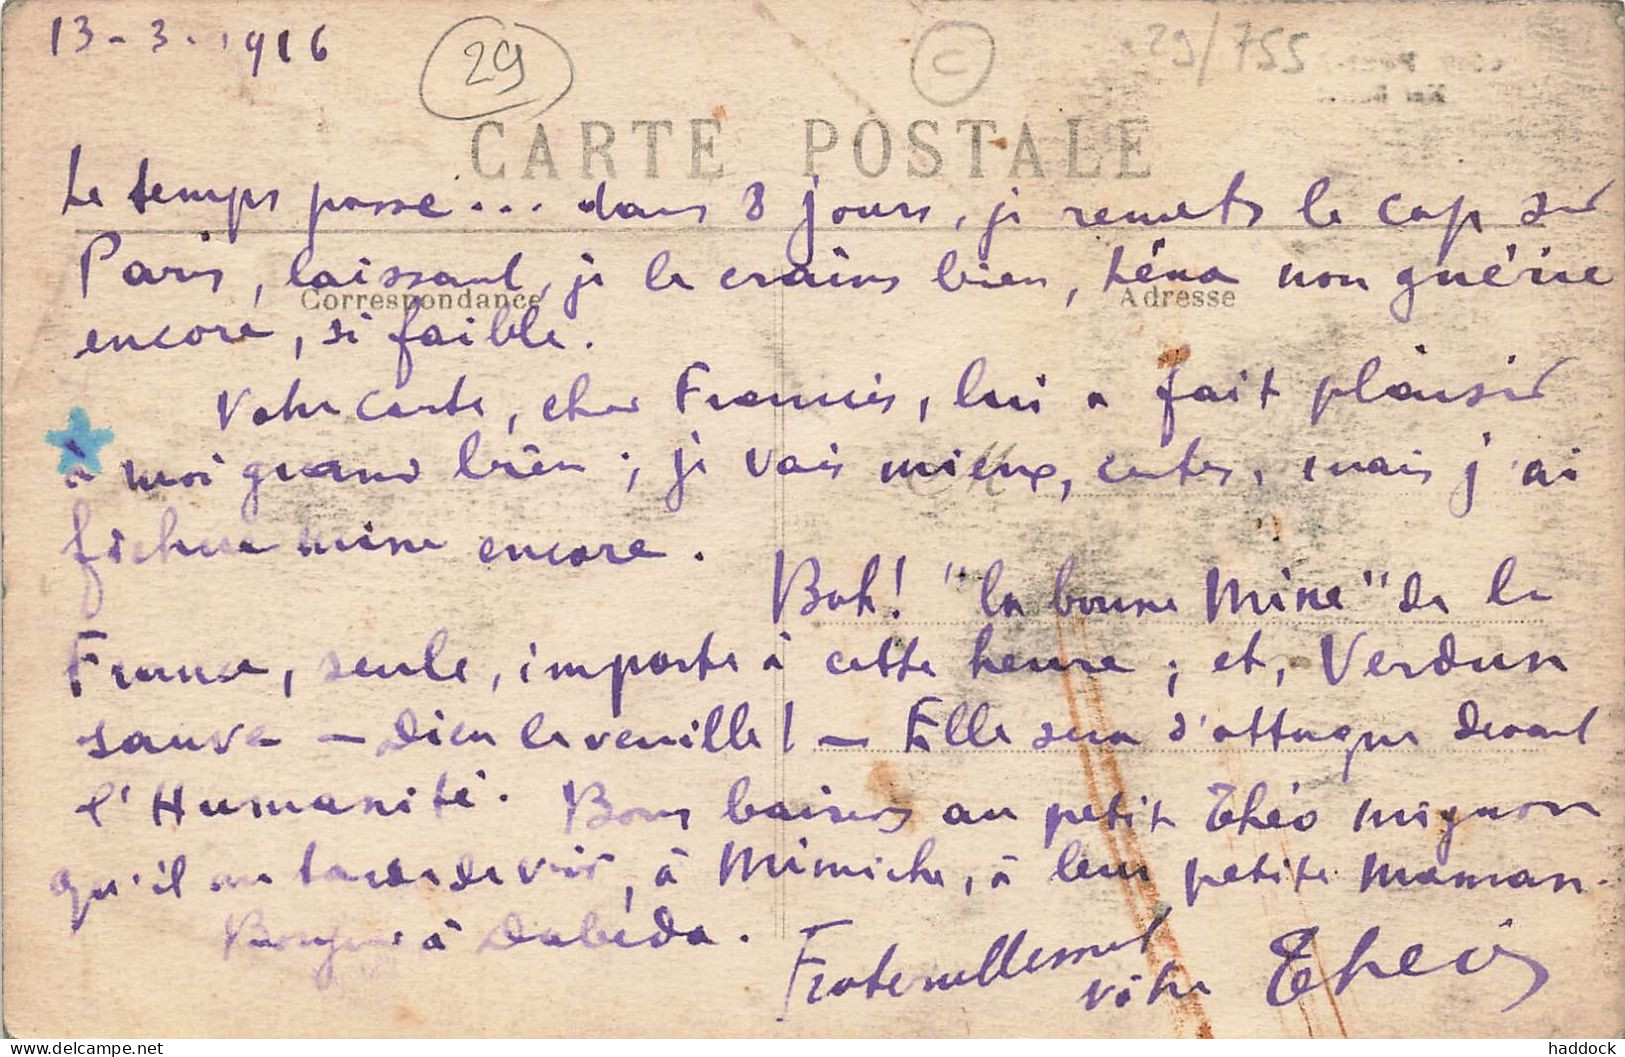 13-3-1916
29
C
29/755
CARTE POSTALE
Le temps passe... dans 8 jours, je remets le cap sur
Paris, laissant, je le crains bien, Léna non guérie
Correspondance
Adresse
encore, si faible.
Votre carte, cher Francis, lui a fait plaisir
à moi grand bien ; je vais mieux, certes, mais j'ai
fichue mine encore.
Bah! "la bonne Mine" de la
France, seule, importe à cette heure ; et, Verdun
sauvé - Dieu le veuille! - Elle sera d'attaque devant
l'Humanité. Bons baisers au petit Théo mignon
qu'il me tarde de voir, à Mimiche, à leur petite maman.
Bonjour à Dabéda.
Fraternellement
vôtre
delcampe.net
haddock